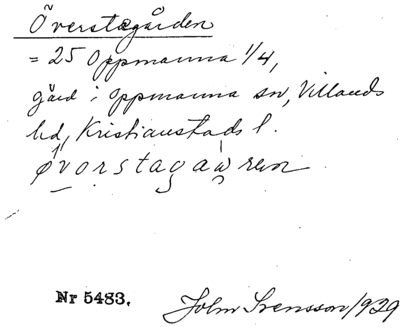 Överstegården
= 25 Oppmanna 1/4,
gård i Oppmanna sn, Villands
hd, Kristianstads l.
Nr 5483.
John Svensson 1929